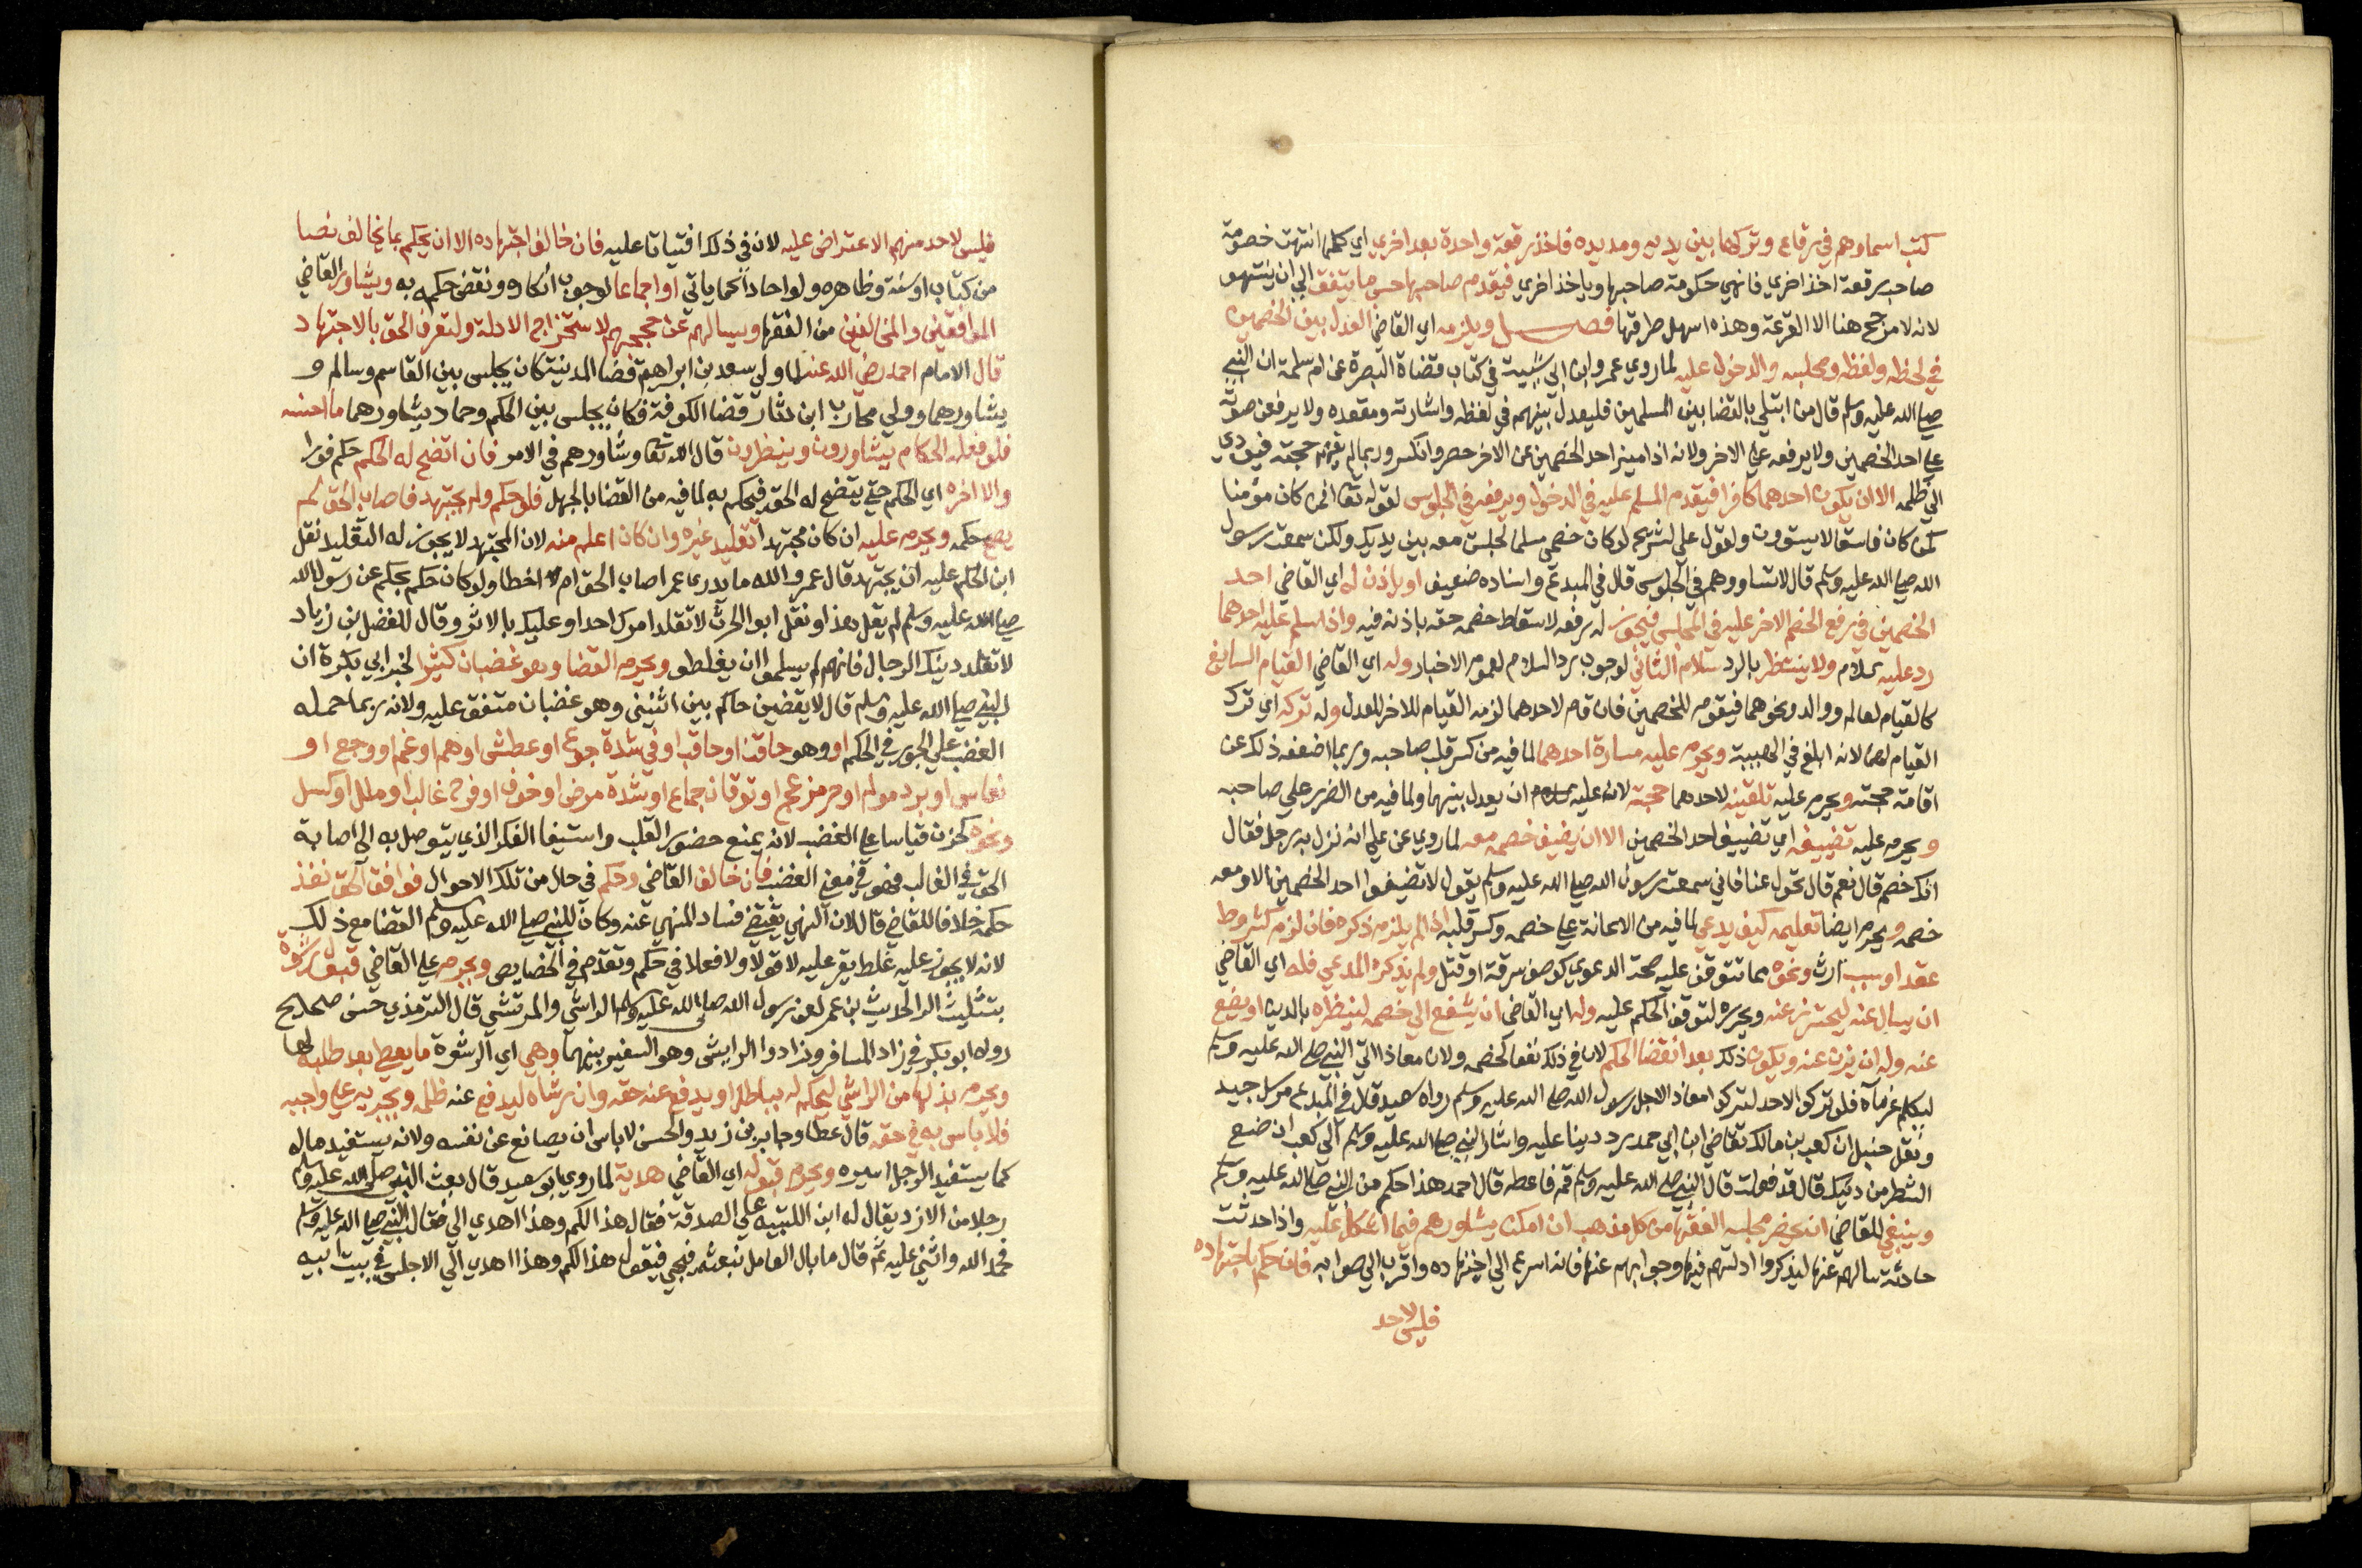 كتب اسماوهم في رقاع وتركها بين يديه ومد يده فاخذ رقعة واحدة بعد اخري اي كلما انتهت خصومة
صاحب رقعة اخذ اخري فانهي حكومة صاحبها وياخذ اخري فيقدم صاحبها حسب ما يتفق الي ان ينتهو
لانه لا مرجح هنا الا القرعة وهذه اسهل طرقها فصل ويلزمه اي القاضي العدل بين الخصمين
في لحظه ولفظه ومجلسه والدخول عليه لما روي عمرو ابن ابي شيبة في كتاب قضاة البصرة عن ام سلمة ان النبي
صلي الله عليه وسلم قال من ابتلي بالقضا بين المسلمين فليعدل بينهم في لفظه واشارته ومقعده ولا يرفعن صوته
علي احد الخصمين ولا يرفعه علي الاخر ولانه اذا ميز احد الخصمين عن الاخر حصر وانكسر وربما لم حجته فيودي
الي ظلمه الا ان يكون احدهما كافرا فيقدم المسلم عليه في الدخول ويرفعه في الجلوس لقوله تعا افمن كان مؤمنا
كمن كان فاسقا لا يستوون ولقول علي لشريح لو كان خصمي مسلما لجلست معه بين يديك ولكن سمعت رسول
الله صلي الله عليه وسلم قال لا تساووهم في الجلوس قال في المبدع واسناده ضعيف او ياذن له اي القاضي احد
الخصمين في رفع الخصم الاخر عليه في المجلس فيجوز له رفعه لاسقاط خصمه حقه باذنه فيه واذا سلم عليه احدهما
رد عليه سلام ولا ينتظر بالرد سلام الثاني لوجوب رد السلام لعموم الاخبار وله اي القاضي القيام السايغ
كالقيام لعالم ووالد ونحوهما فيقوم للخصمين فان قام لاحدهما لزمه القيام للاخر للعدل وله تركه اي ترك
القيام لهما لانه ابلغ في الهيبة ويحرم عليه مسارة احدهما لما فيه من كسر قلب صاحبه وربما اضعفه ذلك عن
اقامة حجته ويحرم عليه تلقينه لاحدهما حجته لانه عليه ان يعدل بينهما ولما فيه من الضرر علي صاحبه
ويحرم عليه تضييفه اي تضييف احد الخصمين الا ان يضيف خصمه معه لما روي عن علي انه نزل به رجل فقال
انك خصم قال نعم قال تحول عنا فاني سمعت رسول الله صلي الله عليه وسلم يقول لا تضيفوا احد الخصمين الا ومعه
خصمه ويحرم ايضا تعليمه كيف يدعي لما فيه من الاعانة علي خصمه وكسر قلبه اذا لم يلزم ذكره فان لزم كشروط
عقد او سبب ارث ونحوه مما تتوقف عليه صحة الدعوي كوصف سرقة او قتل ولم يذكره المدعي فله اي القاضي
ان يسال عنه ليحترز عنه ويحرره لتوقف الحكم عليه وله اي القاضي ان يشفع الي خصمه لينظره بالدين او يضع
عنه وله ان يزن عنه ويكون ذلك بعد انقضا الحكم لان في ذلك نفعا لخصمه ولان معاذا اتي النبي صلي الله عليه وسلم
ليكلم غرماه فلو تركوا لاحد لتركوا معاذا لاجل رسول الله صلي الله عليه وسلم رواه سعيد قال في المبدع مرسل جيد
ونقل حنبل ان كعب بن مالك تقاضي ابن ابي حدرد دينا عليه واشار النبي صلي الله عليه وسلم الي كعب ان ضع
الشطر من دينك قال قد فعلت قال النبي صلي الله عليه وسلم قم فاعطه قال احمد هذا حكم من النبي صلي الله عليه وسلم
وينبغي للقاضي ان يحضر مجلسه الفقها من كل مذهب ان امكن يشاورهم فيما اشكل عليه واذا حدثت
حادثة سالهم عنها ليذكروا ادلتهم فيها وجوابهم عنها فانه اسرع الي اجتهاده واقرب الي صوابه فان حكم باجتهاده
فليس لاحد
فليس لاحد منهم الاعتراض عليه لان في ذلك افتياتا عليه فان خالف اجتهاده الا ان يحكم بما يخالف نصا
من كتاب او سنة وظاهره ولو احادا كما ياتي او اجماعا لوجوب انكاره ونقض حكمه به ويشاور القاضي
الموافقين والمخالفين من الفقها ويسالهم عن حججهم لاستخراج الادلة ولتعرف الحق بالاجتهاد
قال الامام احمد رضي الله عنه لما ولي سعد بن ابراهيم قضا المدينة كان يجلس بين القاسم وسالم و
يشاورهما وولي محارب ابن دثار قضا الكوفة فكان يجلس بين الحكم وحماد يشاورهما ما احسنه
فلو فعله الحكام يتشاورون وينظرون قال الله تعا وشاورهم في الامر فان اتضح له الحكم حكم فورا
والا اخره اي الحكم حتي يتضح له الحق فيحكم به لما فيه من القضا بالجهل فلو حكم ولم يجتهد فاصاب الحق لم
يصح حكمه ويحرم عليه ان كان مجتهدا تقليد غيره وان كان اعلم منه لان المجتهد لا يجوز له التقليد نقل
ابن الحكم عليه ان يجتهد قال عمر والله ما يدري عمر اصاب الحق ام اخطا ولو كان حكم بحكم عن رسول الله
صلي الله عليه وسلم لم يقل هذا ونقل ابو الحرث لا تقلد امرك احدا وعليك بالاثر وقال للفضل بن زياد
لا تقلد دينك الرجال فانهم لم يسلموا ان يغلطو ويحرم القضا وهو غضبان كثيرا لخبر ابي بكرة ان
النبي صلي الله عليه وسلم قال لا يقضين حاكم بين اثنين وهو غضبان متفق عليه ولانه ربما حمله
الغضب علي الجور في الحكم او وهو حاقن او حاقب او في شدة جوع او عطش او هم او غم او وجع او
نعاس او برد مولم او حر مزعج او توقان جماع او شدة مرض او خوف او فرح غالب او ملل او كسل
ونحوه كحزن قياسا علي الغضب لانه يمنع حضور القلب واستيفا الفكر الذي يتوصل به الي اصابة
الحق في الغالب فهو في معني الغضب فان خالف القاضي وحكم في حال من تلك الاحوال فوافق الحق نفذ
حكمه خلافا للقاضي قال لان النهي يقتضي فساد المنهي عنه وكان للنبي صلي الله عليه وسلم القضا مع ذلك
لانه لا يجوز عليه غلط يقر عليه لا قولا ولا فعلا في حكم وتقدم في الخصايص ويحرم علي القاضي قبول رشوة
بتثليث الرا لحديث بن عمر لعن رسول الله صلي الله عليه وسلم الراشي والمرتشي قال الترمذي حسن صحيح
رواه ابو بكر في زاد المسافر وزاد والرايش وهو السفير بينهما وهي اي الرشوة ما يعطي بعد طلبه لها
ويحرم بذلها من الراشي ليحكم له بباطل او يدفع عنه حقه وان رشاه ليدفع عنه ظلمه ويجريه علي واجبه
فلا باس به في حقه قال عطا وجابر بن زيد والحسن لا باس ان يصانع عن نفسه ولانه يستفيد ماله
كما يستفيد الرجل اسيره ويحرم قبوله اي القاضي هدية لما روي ابو سعيد قال بعث النبي صلي الله عليه وسلم
رجلا من الازد يقال له ابن اللتبية علي الصدقة فقال هذا لكم وهذا اهدي الي فقال النبي صلي الله عليه وسلم
فحمد الله واثني عليه ثم قال ما بال العامل نبعثه فيجي فيقول هذا لكم وهذا اهدي الي الا جلس في بيت ابيه